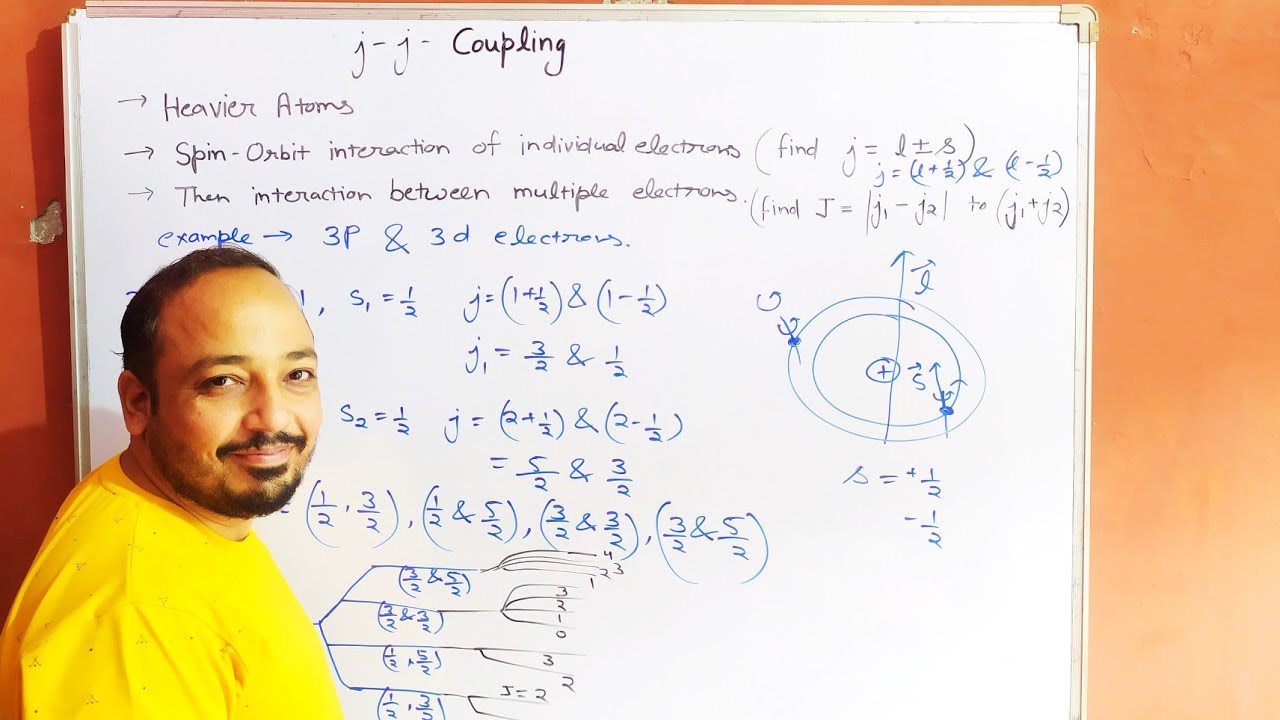 j-j- Coupling
→ Heavier Atoms
→ Spin-Orbit interaction of individual electrons (find j = l ± s)
j = (l + 1/2) & (l - 1/2)
→ Then interaction between multiple electrons. (find J = |j₁ - j₂| to (j₁ + j₂)
example → 3P & 3d electrons.
1, S₁ = 1/2 j = (1 + 1/2) & (1 - 1/2)
j₁ = 3/2 & 1/2
S₂ = 1/2 j = (2 + 1/2) & (2 - 1/2)
= 5/2 & 3/2
= (1/2, 3/2), (1/2 & 5/2), (3/2 & 3/2), (3/2 & 5/2)
(3/2 & 5/2) 4 3 2 1
(3/2 & 3/2) 3 2 1 0
(1/2, 5/2) 3 2
(1/2, 3/2) J = 2
l⃗
+ s⃗
s = +1/2
-1/2